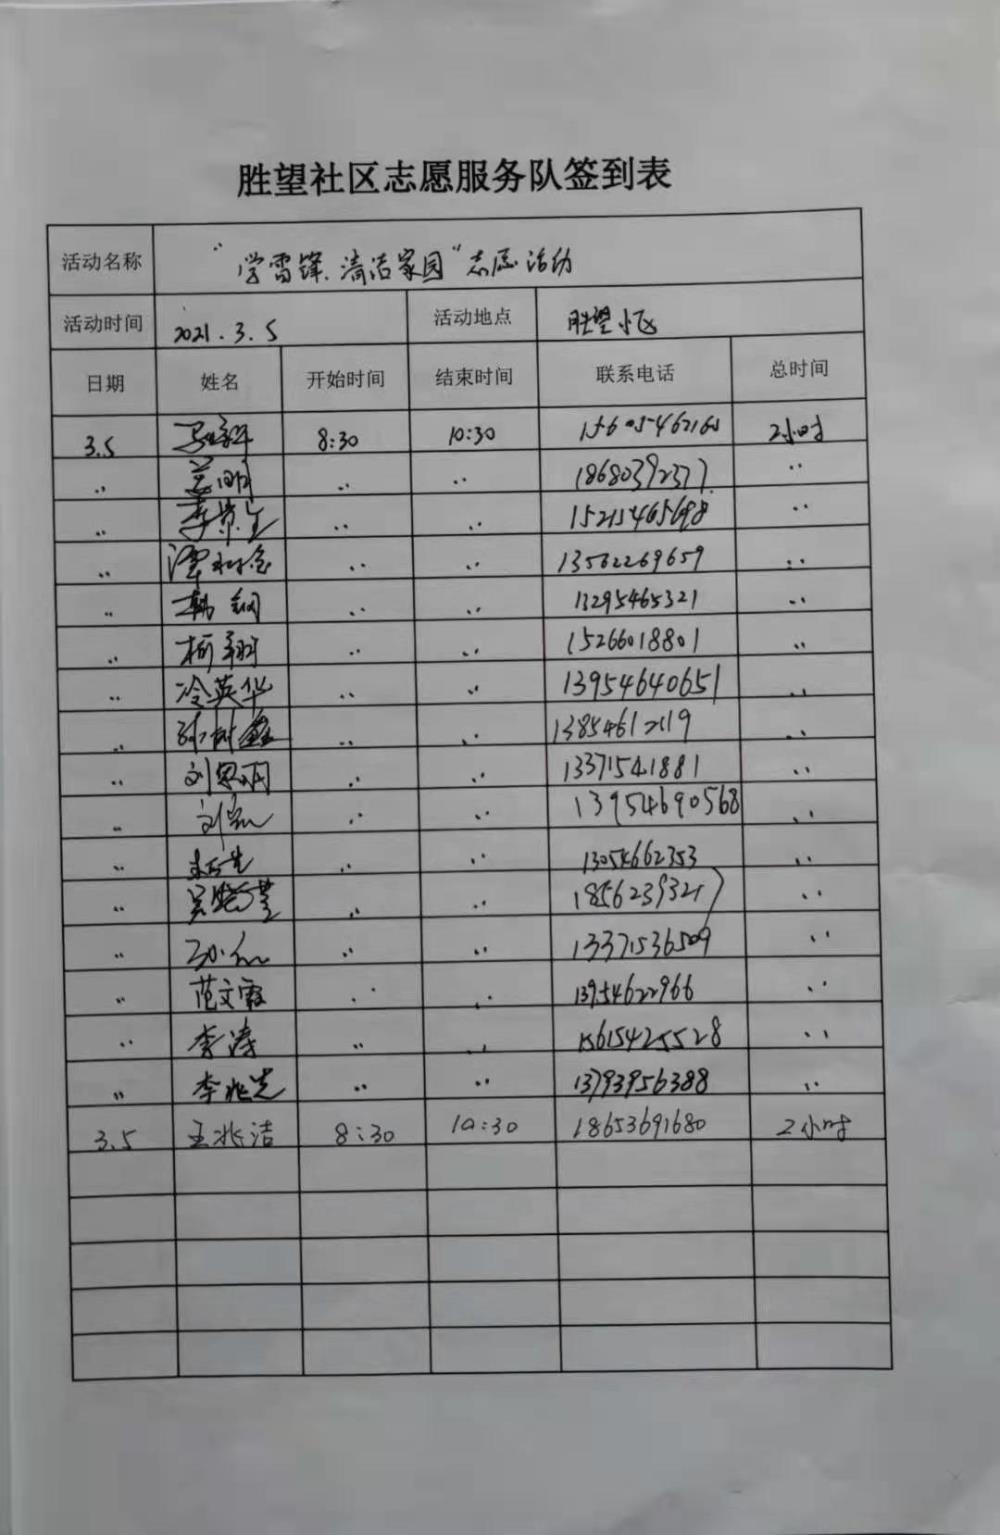 胜望社区志愿服务队签到表
活动名称 "学雷锋、清洁家园"志愿活动
活动时间 2021.3.5 活动地点 胜望小区
日期 姓名 开始时间 结束时间 联系电话 总时间
3.5 8:30 10:30 15605462160 2小时
〃 〃 〃 18680392377 〃
〃 〃 〃 〃
〃 〃 〃 13562269659 〃
〃 韩钢 〃 〃 13295465321 〃
〃 杨翔 〃 〃 15266018801 〃
〃 冷英华 〃 〃 13954640651 〃
〃 〃 〃 13854612119 〃
〃 刘思明 〃 〃 13371541881 〃
〃 〃 〃 13954690568 〃
〃 〃 〃 13054662353 〃
〃 〃 〃 〃
〃 〃 〃 13371536509 〃
〃 范文霞 〃 〃 13954622966 〃
〃 李涛 〃 〃 15615425528 〃
〃 李兆光 〃 〃 13793956388 〃
3.5 王兆洁 8:30 10:30 18653691680 2小时